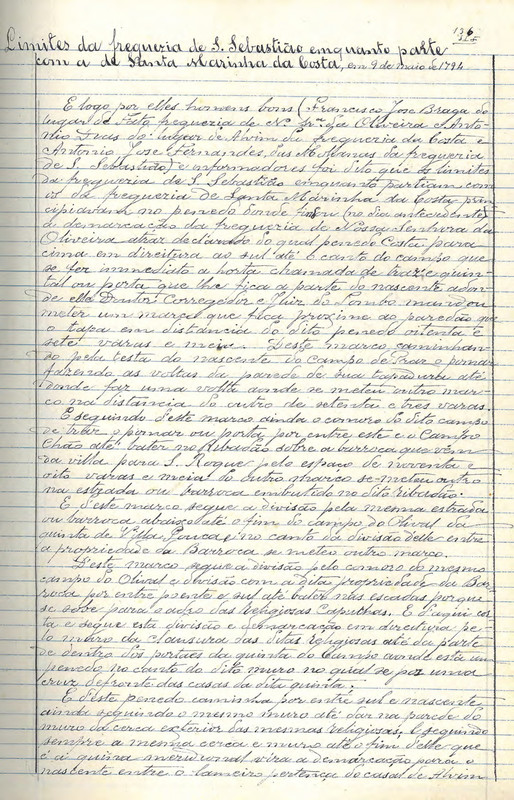 136
Limites da freguezia de S. Sebastião emquanto parte
com a de Santa Marinha da Costa, em 9 de maio de 1794
E logo por elles homens bons (Francisco Jose Braga do
lugar de freguezia de N. Snrª da Oliveira e Anto-
nio Dias do lugar de Alvim da freguezia da Costa e
Antonio Jose Fernandes, da freguezia
de S. Sebastião) e enformadores foi dito que os limites
da freguezia de S. Sebastião emquanto partiam com
os da freguezia de Santa Marinha da Costa prin-
cipiavam no penedo donde (no dia antecedente)
a demarcação da freguezia de Nossa Senhora da
Oliveira atraz declarado do qual penedo Costa para
cima em direitura ao sul até o canto do campo que
se fez immediato a horta chamada de traz e quin-
tal ou porta que lhe fica a parte do nascente adon-
de elle Doutor Corregedor e Juiz do Tombo mandou
meter um marco que fica proximo ao paredão que
o tapa em distancia do dito penedo oitenta e
sete varas e meia. Deste marco caminhan-
do pela testa do nascente do campo de traz o pomar
fazendo as voltas da parede de sua tapadura até
donde faz uma volta aonde se meteu outro mar-
co na distancia do outro de setenta e tres varas.
E seguindo d'este marco ainda o comoro do dito campo
de traz o pomar ou porta, por entre este e o Campo
Chão até bater no Ribadão sobre a barroca que vem
da villa para S. Roque pelo espaço de noventa e
oito varas e meia do outro marco se meteu outro
na estrada ou barroca embutido no dito ribadão.
E d'este marco segue a divisão pela mesma estrada
ou barroca abaixo até o fim do campo do Olival da
quinta de Villa Pouca e no canto da divisão delle entre
a propriedade da Barroca se meteu outro marco.
D'este marco segue a divisão pelo comoro do mesmo
campo do Olival e divisão com a dita propriedade da Bar-
roca por entre poente e sul até bater nas escadas por que
se sobe para o adro das religiosas Capuchas. E d'aqui vol-
ta e segue esta divisão e demarcação em direitura pe-
lo muro da clausura das ditas religiosas até da parte
de dentro dos portaes da quinta do Campo aonde está um
penedo no canto do dito muro no qual se poz uma
cruz defronte das casas da dita quinta.
E d'este penedo caminha por entre sul e nascente
ainda seguindo o mesmo muro até dar na parede do
muro da cerca exterior das mesmas religiosas, e seguindo
sempre a mesma cerca e muro até o fim d'elle que
é a quina meridional vira a demarcação para o
nascente entre o lameiro pertença do casal de Alvim